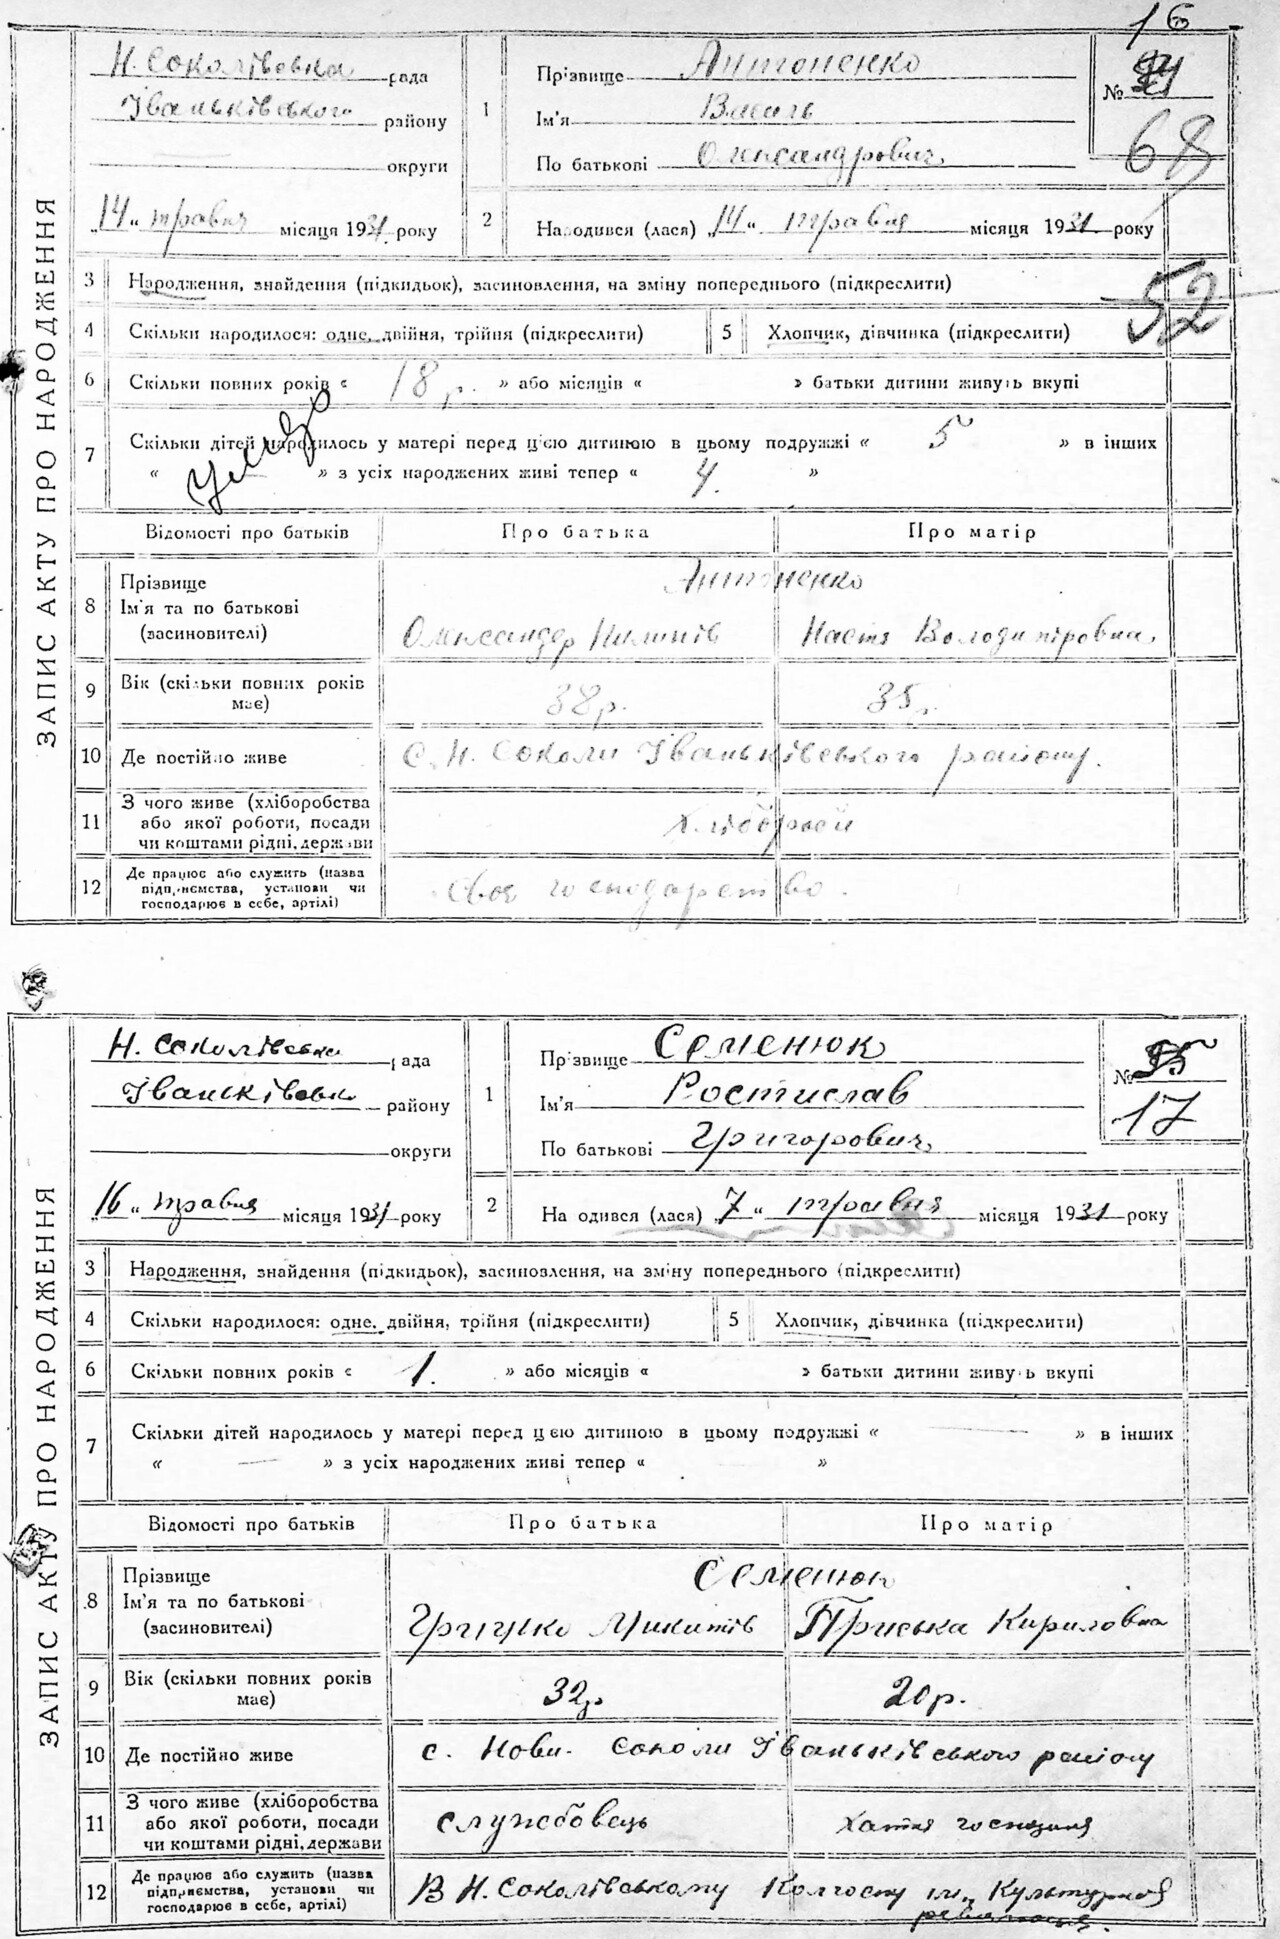 16
ЗАПИС АКТУ ПРО НАРОДЖЕННЯ
Н. Соколівська рада
Іваньківського району
округи
„14“ травня місяця 1931 року
1
Прізвище Антоненко
Ім'я Василь
По батькові Олександрович
№
68
2
Народився (лася) „14“ травня місяця 1931 року
3 Народження, знайдення (підкидьок), засиновлення, на зміну попереднього (підкреслити)
52
4 Скільки народилося: одне, двійня, трійня (підкреслити) 5 Хлопчик, дівчинка (підкреслити)
6 Скільки повних років « 18 р. » або місяців « » батьки дитини живуть вкупі
7 Скільки дітей народилось у матері перед цією дитиною в цьому подружжі « 5 » в інших
« » з усіх народжених живі тепер « 4. »
Відомості про батьків Про батька Про матір
8 Прізвище
Ім'я та по батькові
(засиновителі)
Антоненко
Олександер Настя Володимировна
9 Вік (скільки повних років має) 38 р. 35 р.
10 Де постійно живе с. Н. Соколи Іваньківського району.
11 З чого живе (хліборобства
або якої роботи, посади
чи коштами рідні, держави
12 Де працює або служить (назва
підприємства, установи чи
господарює в себе, артілі)
своє господарство.
ЗАПИС АКТУ ПРО НАРОДЖЕННЯ
Н. Соколівська рада
Іваньківськ району
округи
16 „ травня місяця 1931 року
1
Прізвище Семенюк
Ім'я Ростислав
По батькові Григорович
№
17
2
Народився (лася) „7“ травня місяця 1931 року
3 Народження, знайдення (підкидьок), засиновлення, на зміну попереднього (підкреслити)
4 Скільки народилося: одне, двійня, трійня (підкреслити) 5 Хлопчик, дівчинка (підкреслити)
6 Скільки повних років « 1. » або місяців « » батьки дитини живуть вкупі
7 Скільки дітей народилось у матері перед цією дитиною в цьому подружжі « — » в інших
« — » з усіх народжених живі тепер « »
Відомості про батьків Про батька Про матір
8 Прізвище
Ім'я та по батькові
(засиновителі)
Семенюк
Грицько Микитів Приська Кириловна
9 Вік (скільки повних років має) 32 р 20 р.
10 Де постійно живе с. Нові Соколи Іваньківського району
11 З чого живе (хліборобства
або якої роботи, посади
чи коштами рідні, держави
службовець хатня господиня
12 Де працює або служить (назва
підприємства, установи чи
господарює в себе, артілі)
В Н. Соколівському Колгоспу ім. Культурної
революції.